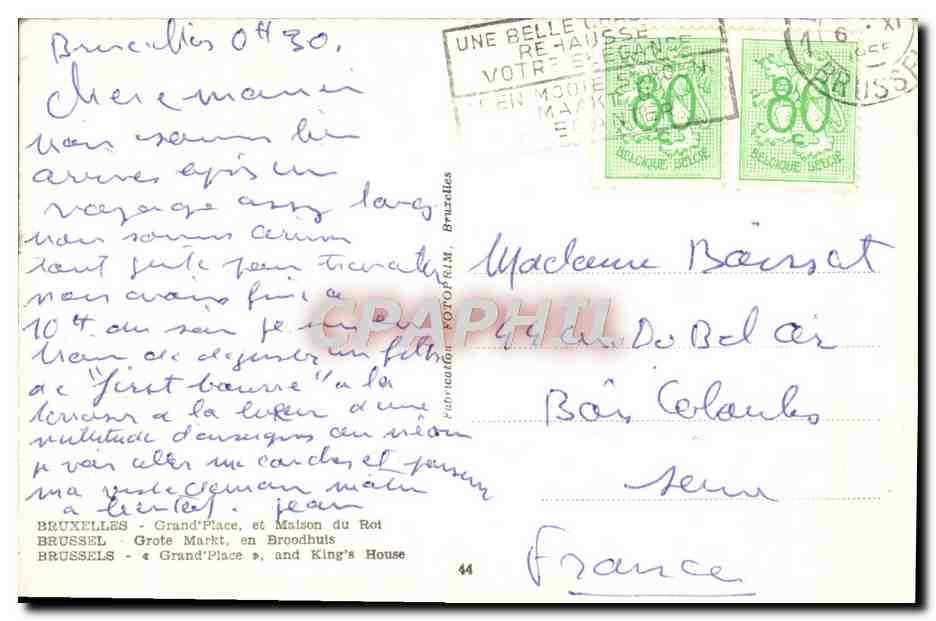 Bruxelles 0H30.
Chere maman
nous sommes bien
arrivés après un
voyage assez long
nous sommes arrivés
tout juste pour travailler
nous avons fini a
10H du soir je suis en
train de deguster un filtre
de "first bourre" a la
terrasse a la lueur d'une
multitude d'enseignes au néon
je vais aller me coucher et passer
ma visite demain matin
a bientot. jean
BRUXELLES - Grand'Place, et Maison du Roi
BRUSSEL - Grote Markt, en Broodhuis
BRUSSELS - « Grand'Place », and King's House
44
Fabrication FOTOPRIM, Bruxelles
UNE BELLE
REHAUSSE
VOTRE ELEGANCE
EEN MOOIE
MAAKT U
6 · XI
1955
BRUSSE
80
BELGIQUE-BELGIË
80
BELGIQUE-BELGIË
Madame Boissat
44 av Du Bel air
Bois Colombes
Seine
France
CPAPHIL